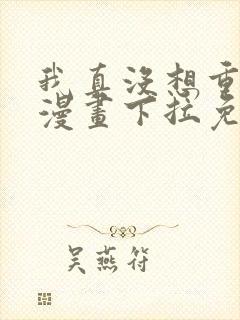 我真没想重
漫畫下拉免
吴燕符